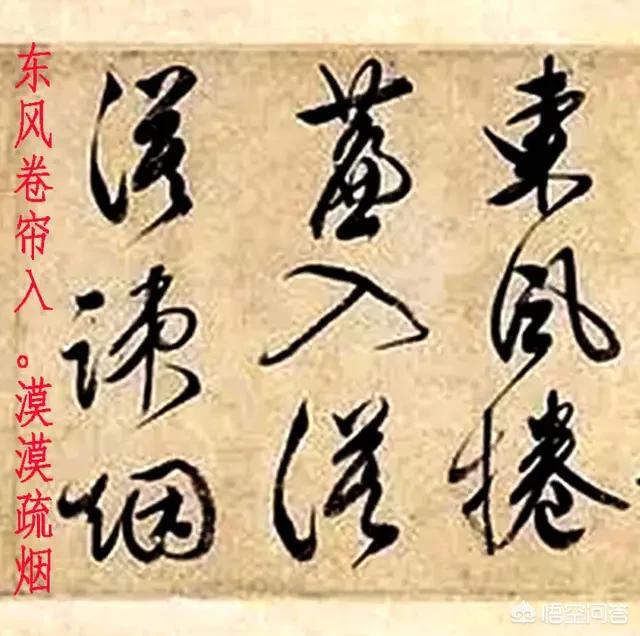 東風捲
簾入漠
漠疎烟
东风卷帘入。漠漠疏烟
悟空问答